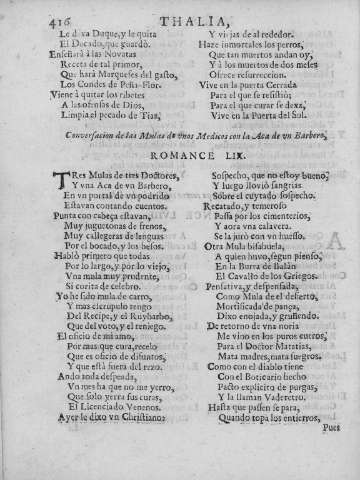 416 THALIA,
Le dexa Duque, y le quita
El Docado, que guardò.
Enseñarà à las Novatas
Receta de tal primor,
Que harà Marqueses del gasto,
Los Condes de Peña-Flor.
Viene à quitar los ribetes
A las ofensas de Dios,
Limpia el pecado de Tias,
Y viejas de alrededor.
Haze inmortales los perros,
Que tan muertos andan oy,
Y à los muertos de dos meses
Ofrece resurreccion.
Vive en la puerta Cerrada
Para el que se resistiò;
Para el que curar se dexa,
Vive en la Puerta del Sol.
Conversacion de las Mulas de vnos Medicos con la Aca de vn Barbero,
ROMANCE LIX.
TRes Mulas de tres Doctores,
Y vna Aca de vn Barbero,
En vn portal de vn podrido
Estavan contando cuentos.
Punta con cabeça estavan,
Muy juguetonas de frenos,
Muy callegeras de lenguas
Por el bocado, y los besos.
Hablò primero que todas
Por lo largo, y por lo viejo,
Vna mula muy prudente,
Si corita de celebro.
Yo he sido mula de carro,
Y mas escrupulo tengo
Del Recipe, y el Ruybarbo,
Que del voto, y el reniego.
El oficio de mi amo,
Por mas que cura, recelo
Que es oficio de difuntos,
Y que està fuera del rezo.
Ando toda despeada,
Vn mes ha que no me yerro,
Que solo yerra sus curas,
El Licenciado Venenos.
Ayer le dixo vn Christiano:
Sospecho, que no estoy bueno,
Y luego lloviò sangrias
Sobre el cuytado sospecho.
Recatado, y temeroso
Passa por los cimenterios,
Y aora vna calavera.
Se la jurò con vn huesso.
Otra Mula bisabuela,
A quien huvo, segun pienso,
En la Burra de Balàn
El Cavallo de los Griegos.
Pensativa, y despensada,
Como Mula de el desierto,
Mortificada de pança,
Dixo enojada, y gruñendo.
De retorno de vna noria
Me vino en los puros cueros,
Para el Doctor Matatias,
Mata madres, mata suegros.
Como con el diablo tiene
Con el Boticario hecho
Pacto explicito de purgas,
Y la llaman Vaderetro.
Hasta que passen se para,
Quando topa los entierros,
Pues